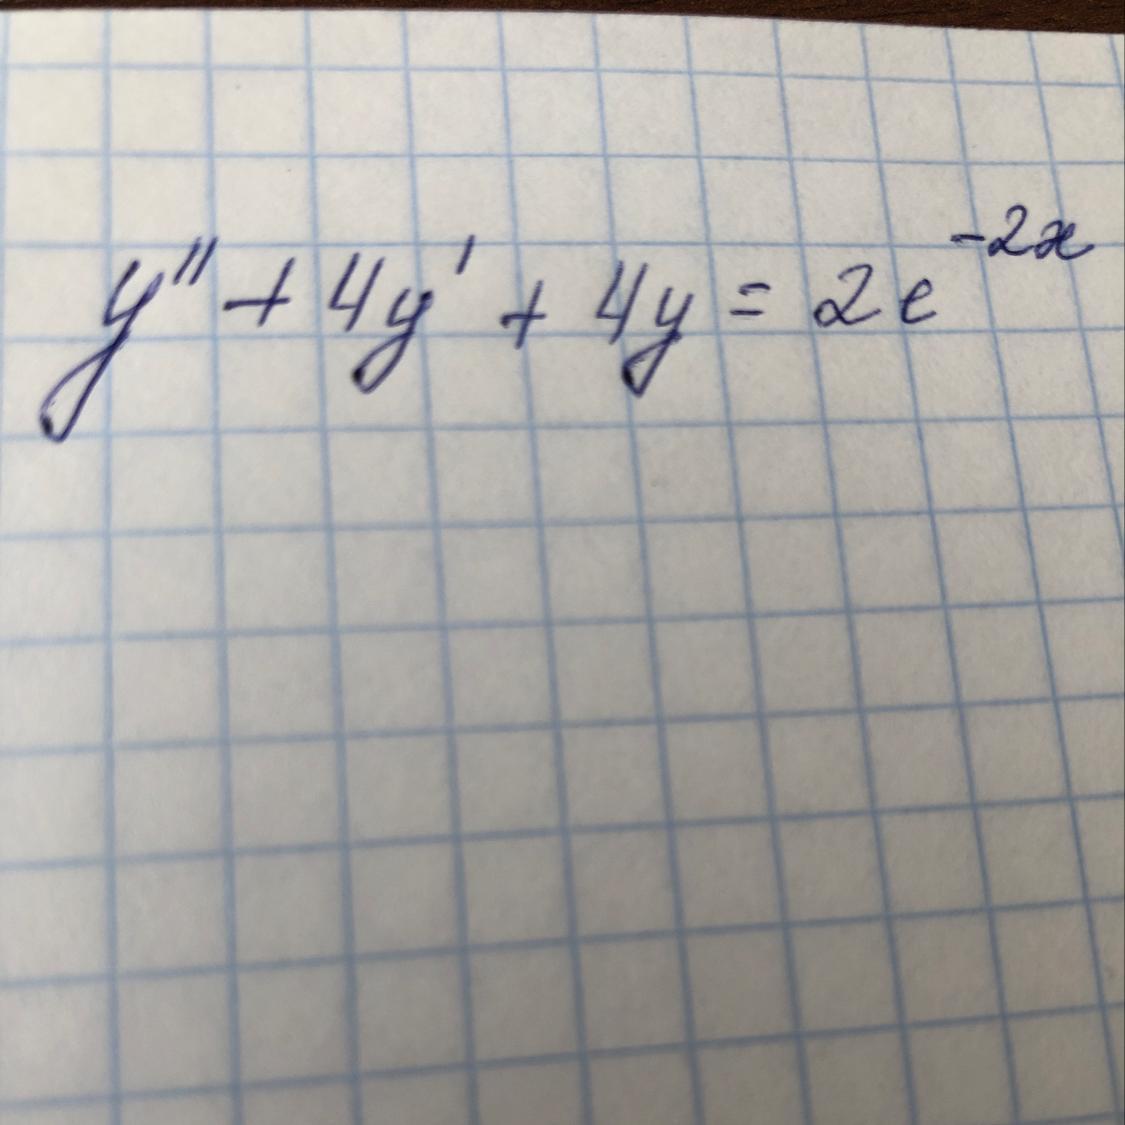 y'' + 4y' + 4y = 2e^{-2x}